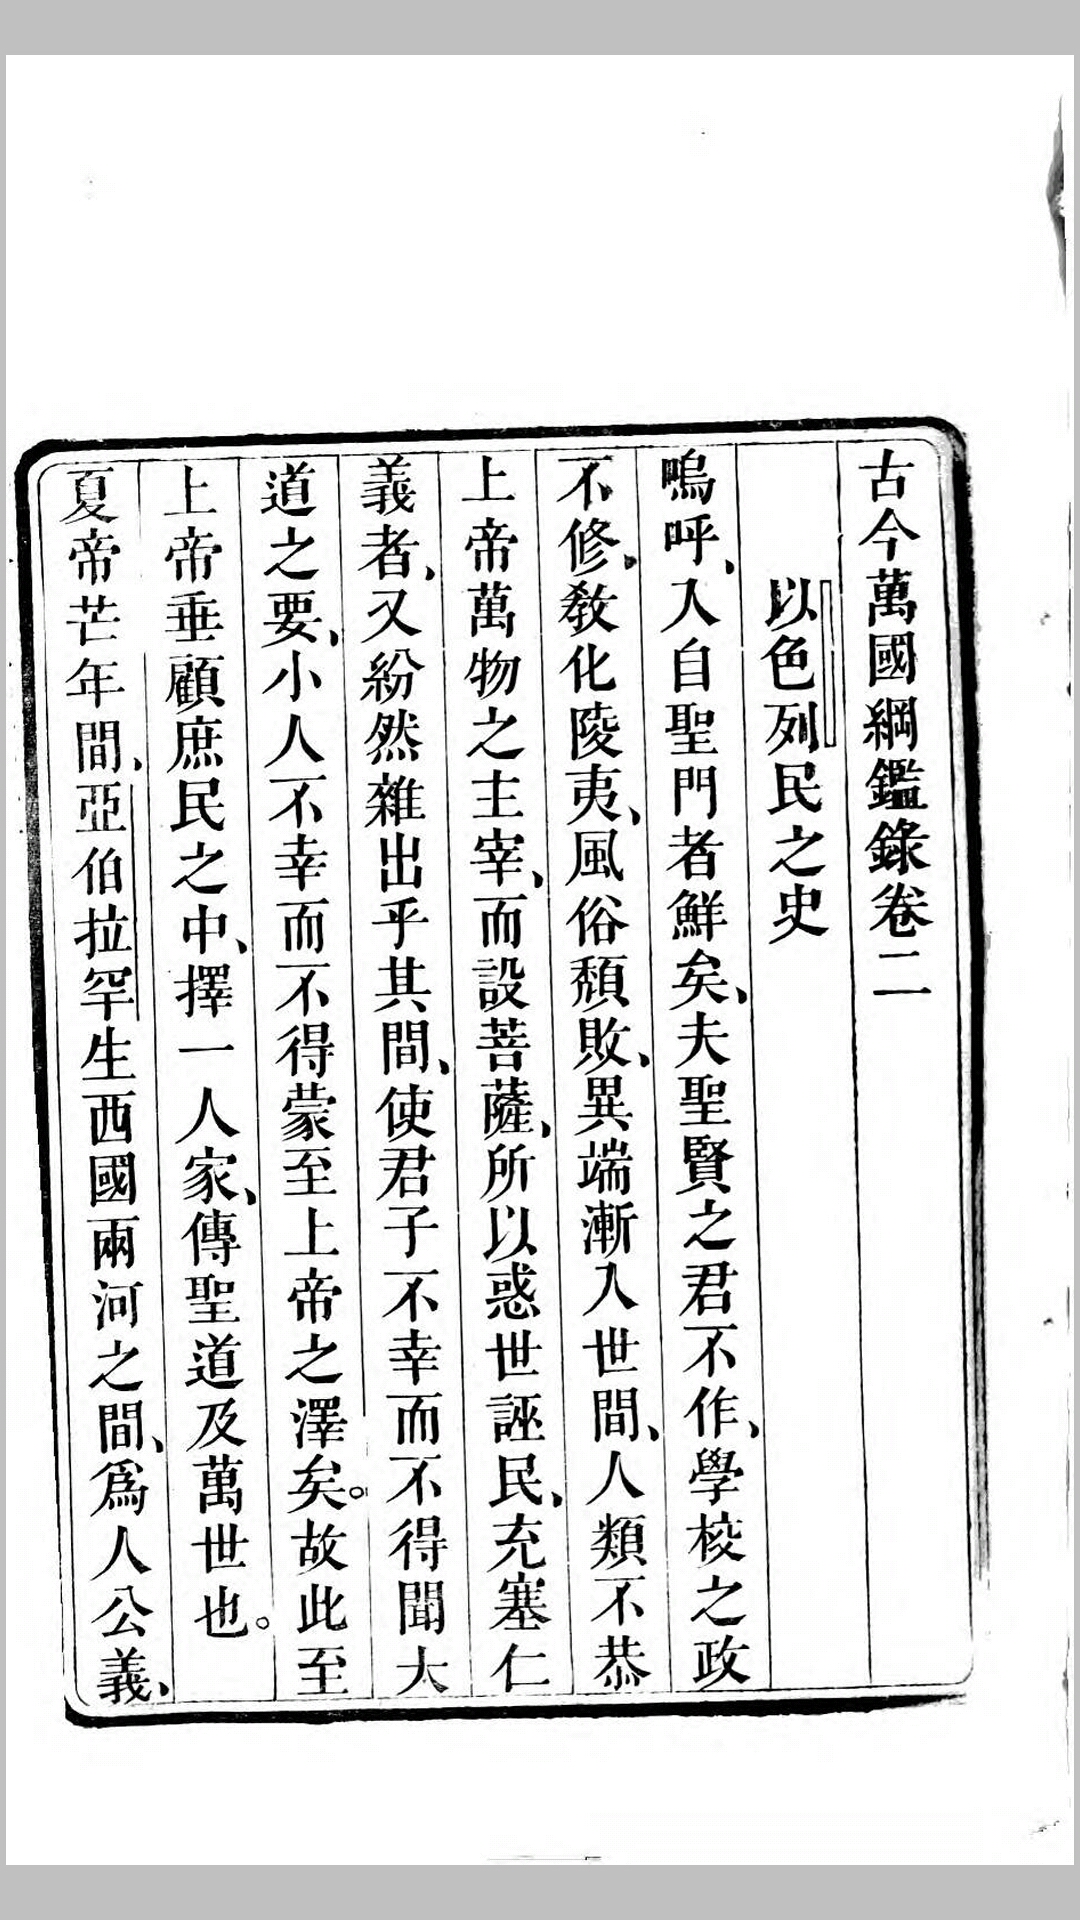 古今萬國綱鑑錄卷二
以色列民之史
嗚呼、入自聖門者鮮矣、夫聖賢之君不作、學校之政
不修、敎化陵夷、風俗頹敗、異端漸入世間、人類不恭
上帝萬物之主宰、而設菩薩、所以惑世誣民、充塞仁
義者、又紛然雜出乎其間、使君子不幸而不得聞大
道之要、小人不幸而不得蒙至上帝之澤矣。故此至
上帝垂顧庶民之中、擇一人家、傳聖道及萬世也。
夏帝芒年間、亞伯拉罕生西國兩河之間、爲人公義、